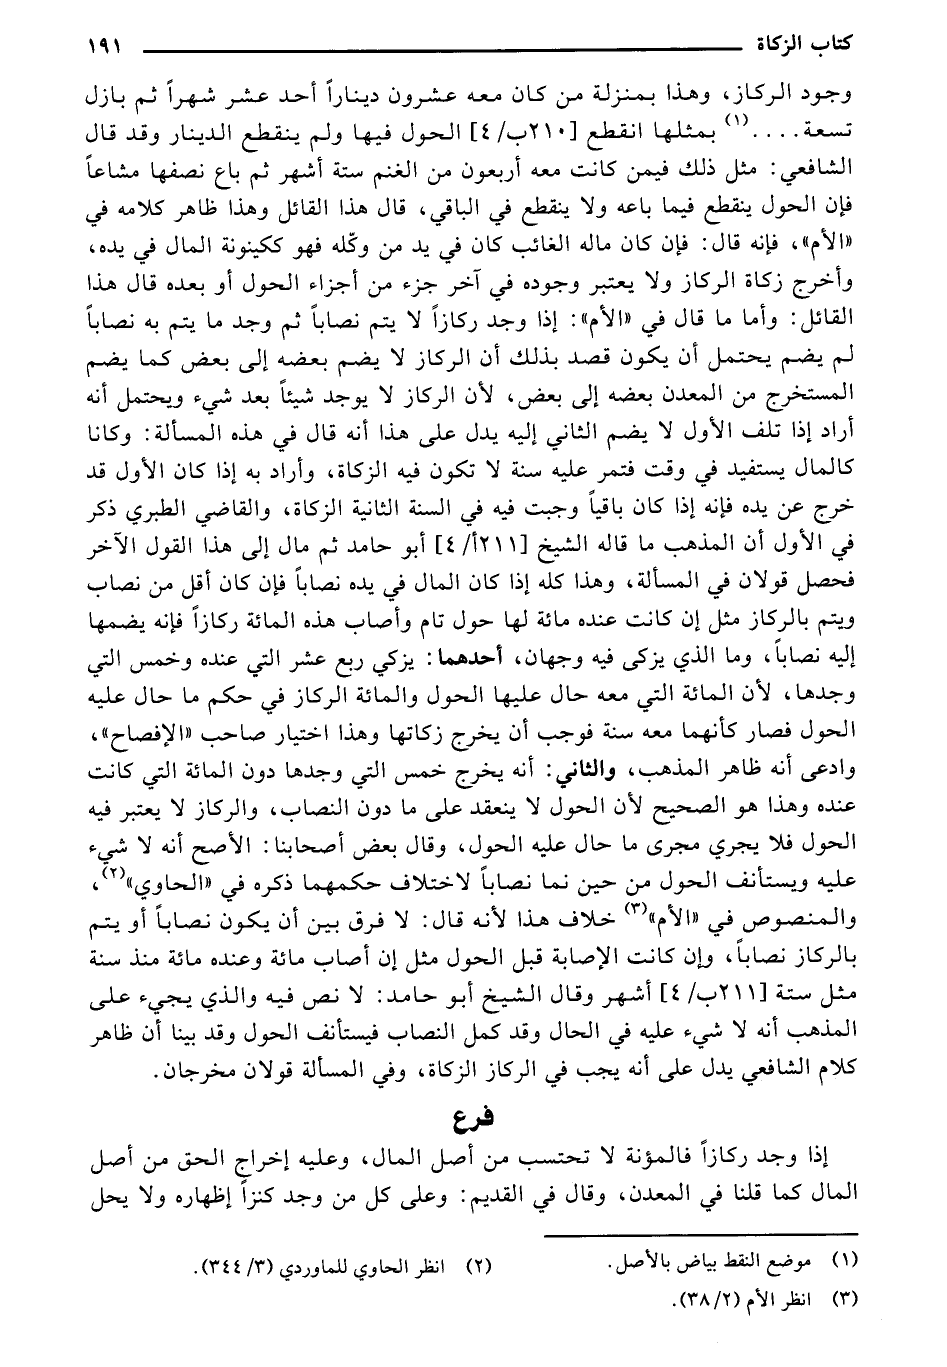 كتاب الزكاة ١٩١
وجود الركاز، وهذا بمنزلة من كان معه عشرون ديناراً أحد عشر شهراً ثم بازل
تسعة....(١) بمثلها انقطع [٢١٠ب/ ٤] الحول فيها ولم ينقطع الدينار وقد قال
الشافعي: مثل ذلك فيمن كانت معه أربعون من الغنم ستة أشهر ثم باع نصفها مشاعاً
فإن الحول ينقطع فيما باعه ولا ينقطع في الباقي، قال هذا القائل وهذا ظاهر كلامه في
«الأم»، فإنه قال: فإن كان ماله الغائب كان في يد من وكّله فهو ككينونة المال في يده،
وأخرج زكاة الركاز ولا يعتبر وجوده في آخر جزء من أجزاء الحول أو بعده قال هذا
القائل: وأما ما قال في «الأم»: إذا وجد ركازاً لا يتم نصاباً ثم وجد ما يتم به نصاباً
لم يضم يحتمل أن يكون قصد بذلك أن الركاز لا يضم بعضه إلى بعض كما يضم
المستخرج من المعدن بعضه إلى بعض، لأن الركاز لا يوجد شيئاً بعد شيء ويحتمل أنه
أراد إذا تلف الأول لا يضم الثاني إليه يدل على هذا أنه قال في هذه المسألة: وكانا
كالمال يستفيد في وقت فتمر عليه سنة لا تكون فيه الزكاة، وأراد به إذا كان الأول قد
خرج عن يده فإنه إذا كان باقياً وجبت فيه في السنة الثانية الزكاة، والقاضي الطبري ذكر
في الأول أن المذهب ما قاله الشيخ [٢١١أ/ ٤] أبو حامد ثم مال إلى هذا القول الآخر
فحصل قولان في المسألة، وهذا كله إذا كان المال في يده نصاباً فإن كان أقل من نصاب
ويتم بالركاز مثل إن كانت عنده مائة لها حول تام وأصاب هذه المائة ركازاً فإنه يضمها
إليه نصاباً، وما الذي يزكى فيه وجهان، أحدهما: يزكي ربع عشر التي عنده وخمس التي
وجدها، لأن المائة التي معه حال عليها الحول والمائة الركاز في حكم ما حال عليه
الحول فصار كأنهما معه سنة فوجب أن يخرج زكاتها وهذا اختيار صاحب «الإفصاح»،
وادعى أنه ظاهر المذهب، والثاني: أنه يخرج خمس التي وجدها دون المائة التي كانت
عنده وهذا هو الصحيح لأن الحول لا ينعقد على ما دون النصاب، والركاز لا يعتبر فيه
الحول فلا يجري مجرى ما حال عليه الحول، وقال بعض أصحابنا: الأصح أنه لا شيء
عليه ويستأنف الحول من حين نما نصاباً لاختلاف حكمهما ذكره في «الحاوي»(٢)،
والمنصوص في «الأم»(٣) خلاف هذا لأنه قال: لا فرق بين أن يكون نصاباً أو يتم
بالركاز نصاباً، وإن كانت الإصابة قبل الحول مثل إن أصاب مائة وعنده مائة منذ سنة
مثل ستة [٢١١ب/ ٤] أشهر وقال الشيخ أبو حامد: لا نص فيه والذي يجيء على
المذهب أنه لا شيء عليه في الحال وقد كمل النصاب فيستأنف الحول وقد بينا أن ظاهر
كلام الشافعي يدل على أنه يجب في الركاز الزكاة، وفي المسألة قولان مخرجان.
فرع
إذا وجد ركازاً فالمؤنة لا تحتسب من أصل المال، وعليه إخراج الحق من أصل
المال كما قلنا في المعدن، وقال في القديم: وعلى كل من وجد كنزاً إظهاره ولا يحل
(١) موضع النقط بياض بالأصل. (٢) انظر الحاوي للماوردي (٣/ ٣٤٤).
(٣) انظر الأم (٢/ ٣٨).